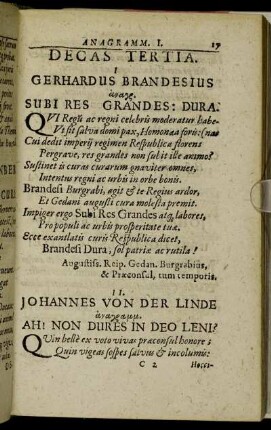 ANAGRAMM. I. 19
DECAS TERTIA.
I
GERHARDUS BRANDESIUS
ἀναγρ.
SUBI RES GRANDES: DURA.
QUI Regũ ac regni celebris moderatur habe-
Ut sit salva domi pax, Homonœa foris: (nas
Cui dedit imperij regimen Respublica florens
Pergrave, res grandes non subit ille animo?
Sustinet is curas curarum gnaviter omnes,
Intentus regni ac urbis in orbe bonis.
Brandesi Burgrabi, agit & te Regius ardor,
Et Gedani augusti cura molesta premit.
Impiger ergo Subi Res Grandes atq; labores,
Pro populi ac urbis prosperitate tuæ.
Ecce exantlatis curis Respublica dicet,
Brandesi Dura, sol patriæ ac rutila!
Augustiss. Reip. Gedan. Burgrabius,
& Præconsul, tum temporis.
II.
JOHANNES VON DER LINDE
ἀναγραμμ.
AH! NON DURES IN DEO LENI?
Quin bellè ex voto vivas præconsul honore;
Quin vigeas sospes salvus & incolumis:
C 2 Hocci-